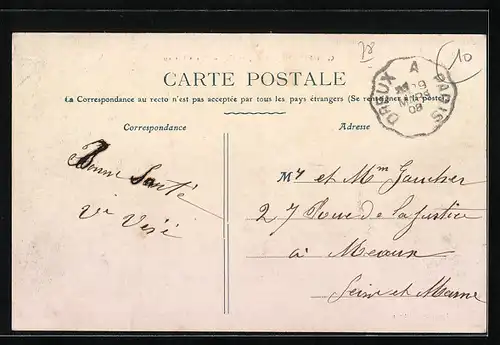 28
10
CARTE POSTALE
La Correspondance au recto n'est pas acceptée par tous les pays étrangers (Se renseigner à la poste)
DREUX A PARIS
9
MARS
08
Correspondance
Adresse
Bonne Santé
Mr et Mm Gaucher
27 Rue de la Justice
à Meaux
Seine et Marne